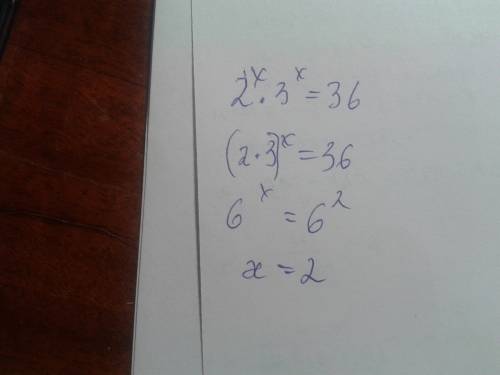 2^x · 3^x = 36
(2 · 3)^x = 36
6^x = 6^2
x = 2